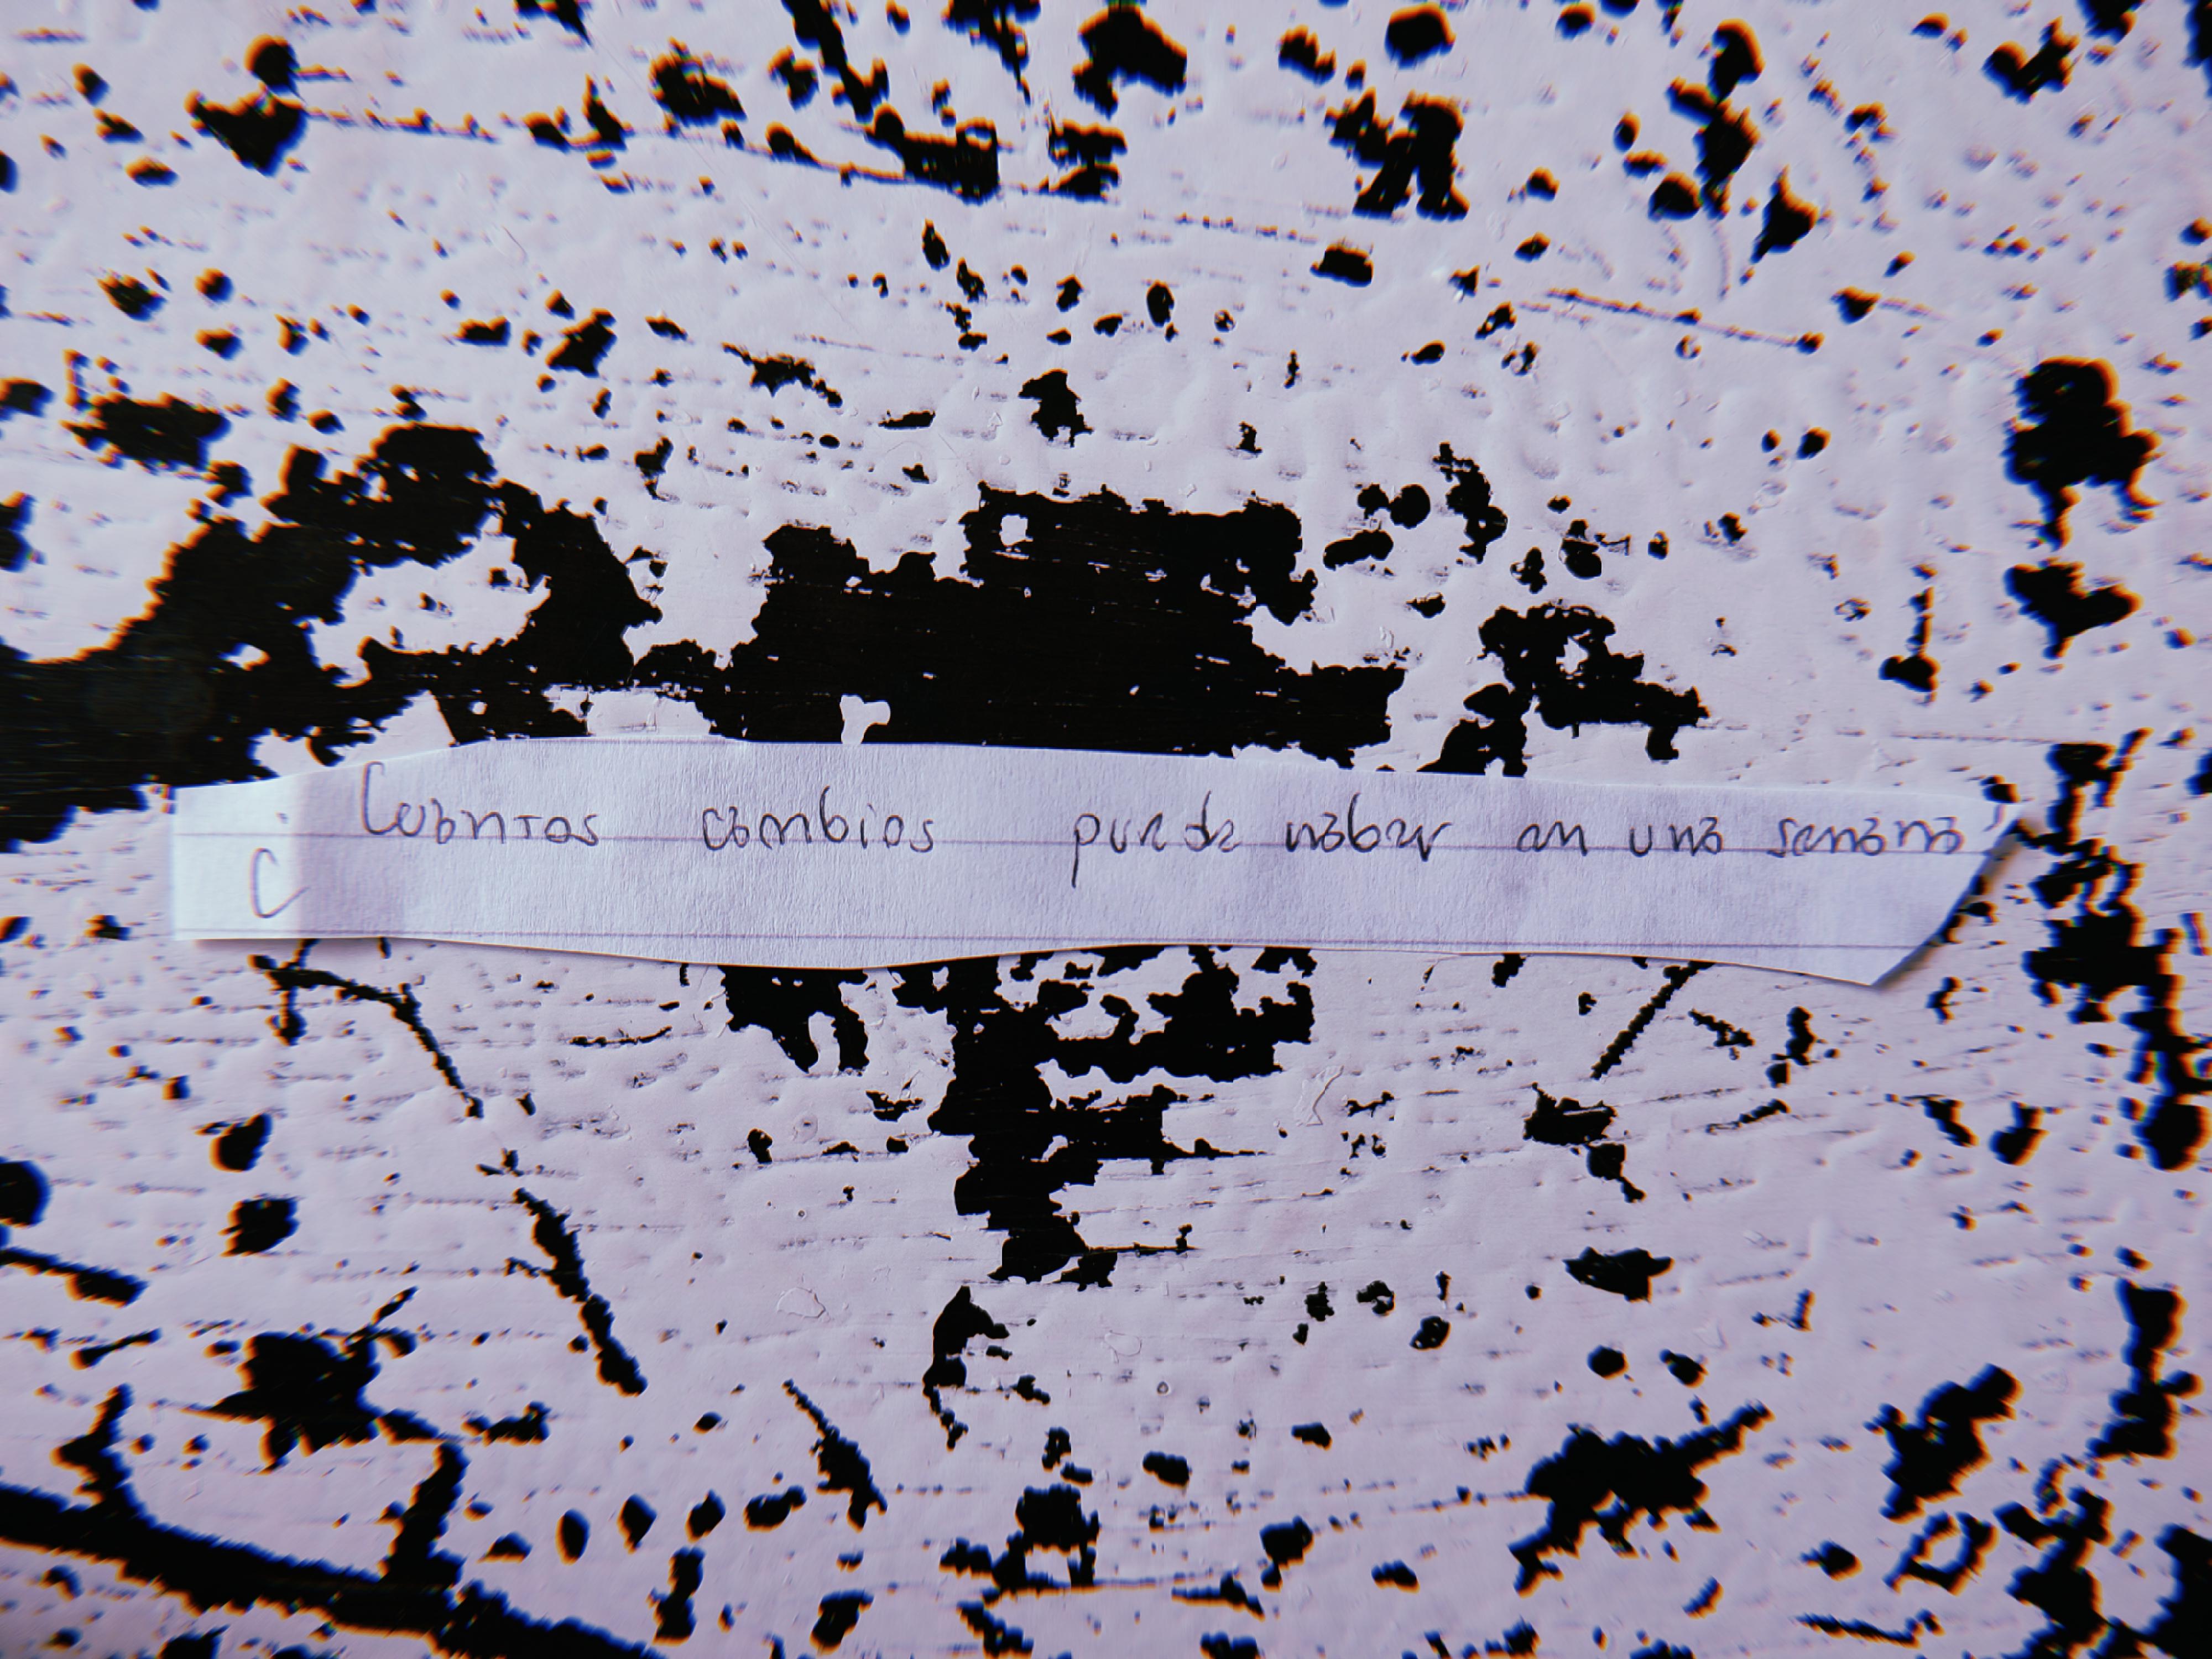 ¿Cuantos cambios puede haber en una semana?